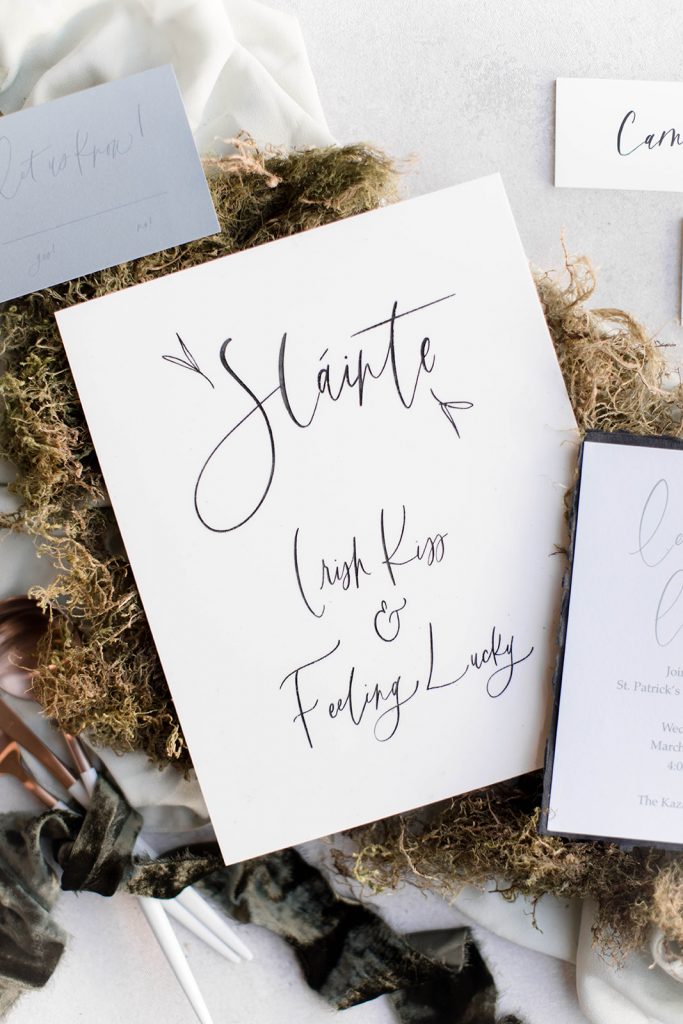 Let us know!
no!
Cam
Sláinte
Irish Kiss
&
Feeling Lucky
Join
St. Patrick's
Wed
March
4:0
The Kaza